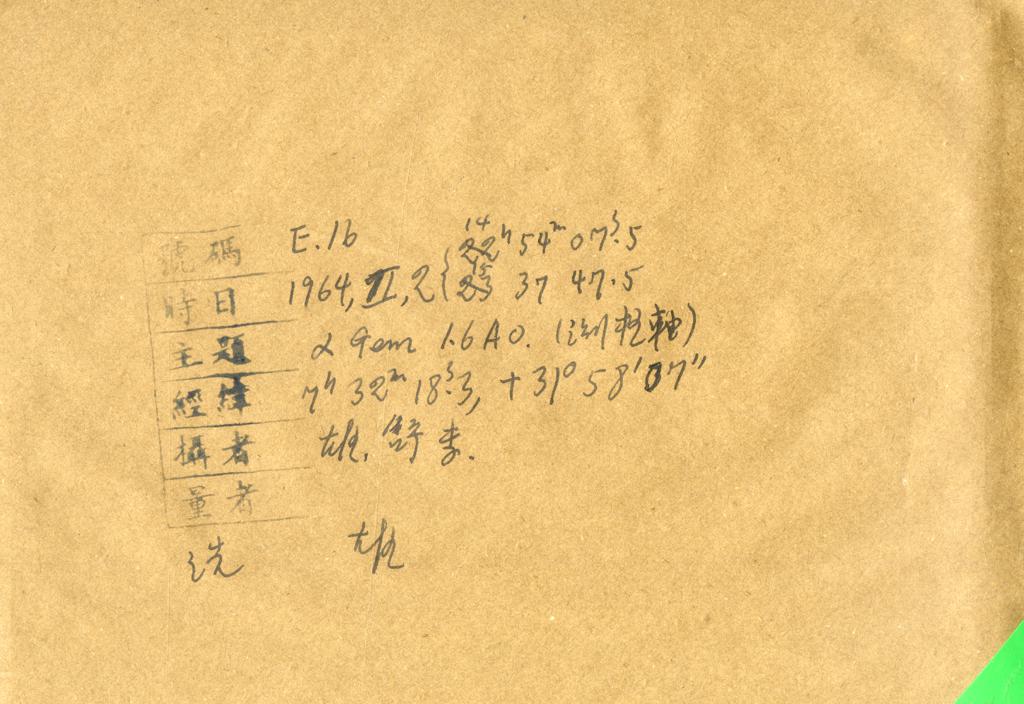 號碼 E.16 14ʰ 54ᵐ 07ˢ.5
時日 1964, II, 2 { 15 37 47.5
主題 α Gem 1.6 A0. (測極軸)
經緯 7ʰ 32ᵐ 18ˢ.3, +31° 58′ 07″
攝者 雄. 舒 李.
量者
洗 雄